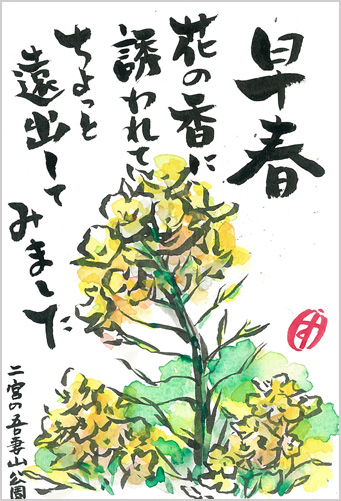 早春
花の香に
誘われて
ちょっと
遠出して
みました
二宮の吾妻山公園